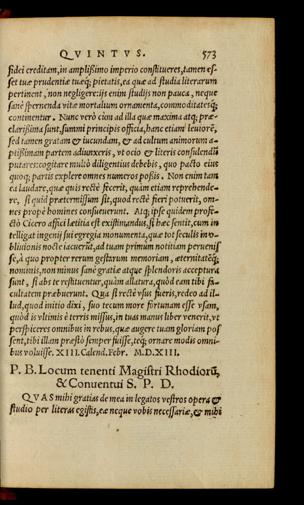 QVINTVS. 573
fidei creditam, in amplißimo imperio constitueres, tamen es-
set tuæ prudentiæ tuæq; pietatis, ea quæ ad studia literarum
pertinent, non negligere: ijs enim studijs non pauca, neque
sanè spernenda vitæ mortalium ornamenta, commoditatesq;
continentur. Nunc verò cùm ad illa quæ maxima atq; præ-
clarißima sunt, summi principis officia, hanc etiam leuiorẽ,
sed tamen gratam & iucundam, & ad cultum animorum a-
ptißimam partem adiunxeris, vt ocio & literis consulendũ
putares: cogitare multò diligentius debebis, quo pacto eius
quoq; partis explere omnes numeros poßis. Non enim tam
ea laudare, quæ quis rectè fecerit, quàm etiam reprehende-
re, si quid prætermissum sit, quod rectè fieri potuerit, om-
nes propè homines consueuerunt. Atq; ipse quidem profe-
ctò Cicero affici lætitia est existimandus, si hæc sentit, cùm in
telligat ingenij sui egregia monumenta, quæ tot seculis in o-
bliuionis nocte iacuerũt, ad tuam primum notitiam peruenis
se, à quo propter rerum gestarum memoriam, æternitatẽq;
nominis, non minus sanè gratiæ atque splendoris acceptura
sunt, si abs te restituentur, quàm allatura, quòd eam tibi fa-
cultatem præbuerunt. Qua si rectè vsus fueris, redeo ad il-
lud, quod initio dixi, suo tecum more fortunam esse vsam,
quòd is vltimis è terris missus, in tuas manus liber venerit, vt
perspiceres omnibus in rebus, quæ augere tuam gloriam pos
sent, tibi illam præstò semper fuisse, teq; ornare modis omni-
bus voluisse. XIII. Calend. Febr. M.D.XIII.
P. B. Locum tenenti Magistri Rhodiorũ,
& Conuentui S. P. D.
QVAS mihi gratias de mea in legatos vestros opera &
studio per literas egistis, eæ neque vobis necessariæ, & mihi